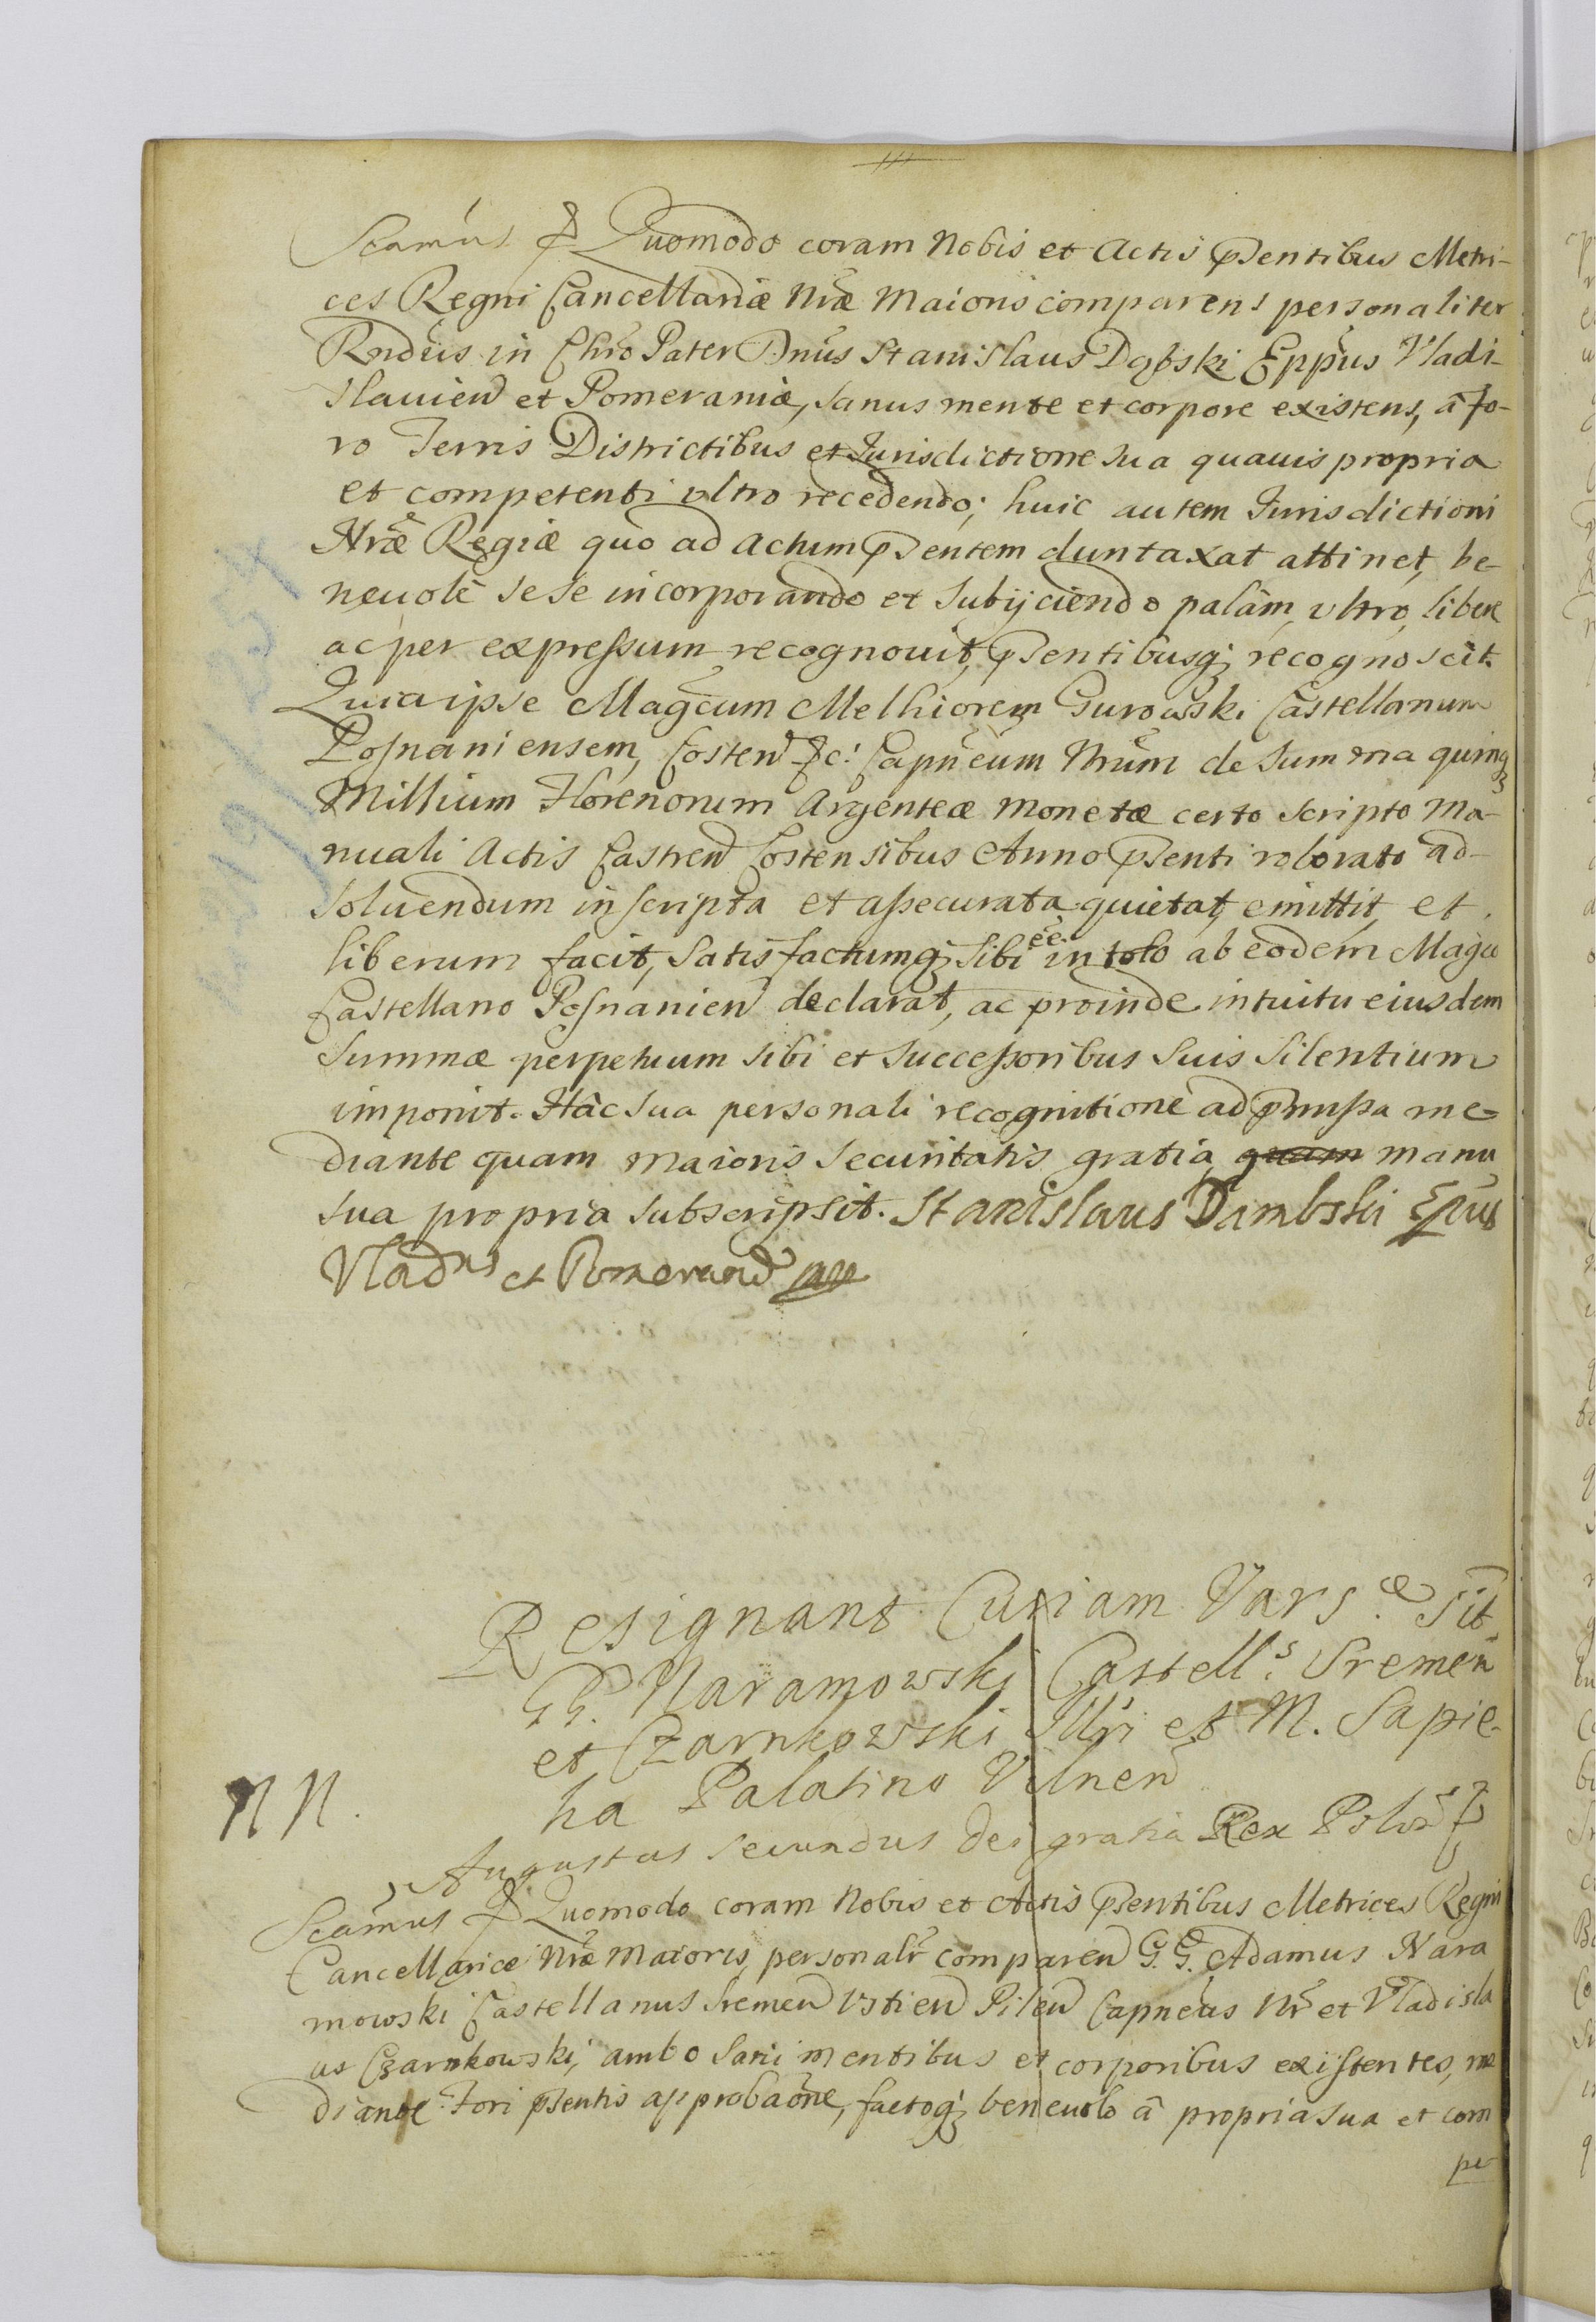 Scamus & Quomodo coram Nobis et Actis pñtibus Metri-
ces Regni Cancellariæ Nræ Maioris comparens personaliter
Rndus in Chro Pater Dnus Stanislaus Dąbski Eppus Vladi-
slauien et Pomeraniæ, sanus mente et corpore existens, â fo-
ro Terris Districtibus et Jurisdictione sua quauis propria
et competenti vltro recedendo; huic autem Jurisdictioni
Nræ Regiæ quo ad Actum pñtem duntaxat attinet, be-
neuolè sese incorporando et subijciendo palàm, vltro, libere
ac per expressum recognouit, pñtibusq; recognoscit.
Quia ipse Magcum Melhiorem Gurowski Castellanum
Posnaniensem, Costen &c: Capneum Nrum de summa quinq;
Millium Florenorum Argenteæ Monetæ certo scripto Ma-
nuali Actis Castren Costensibus Anno pñti roborato ad-
soluendum inscripta et assecurata quietat, emittit, et
liberum facit, satisfactumq; sibi èe in toto ab eodem Magco
Castellano Posnanien declarat, ac proinde intuitu eiusdem
summæ perpetuum sibi et successoribus suis silentium
imponit. Hâc sua personali recognitione ad pmissa me-
diante quam maioris securitatis gratia quam manu
sua propria subscripsit. Stanislaus Dambski Eppus
Vladns et Pomeran mp
Resignant Curiam Vars.æ sit
GG. Naramowski Castell.s Sremen
et Czarnkowski Illri et M. Sapie-
ha Palatino Vilnen
NN.
Augustus secundus Dei gratia Rex Polon &
Scamus & Quomodo coram Nobis et Actis pñtibus Metrices Regni
Cancellariæ Nræ Maioris personalr comparen G. G. Adamus Nara
mowski Castellanus Sremen Vstien Pilen Capneus Nr et Vladisla
us Czarnkowski, ambo sani mentibus et corporibus existentes, me
diante Fori pñtis approbaone, factoq; beneuolo â propria sua et com
pe-